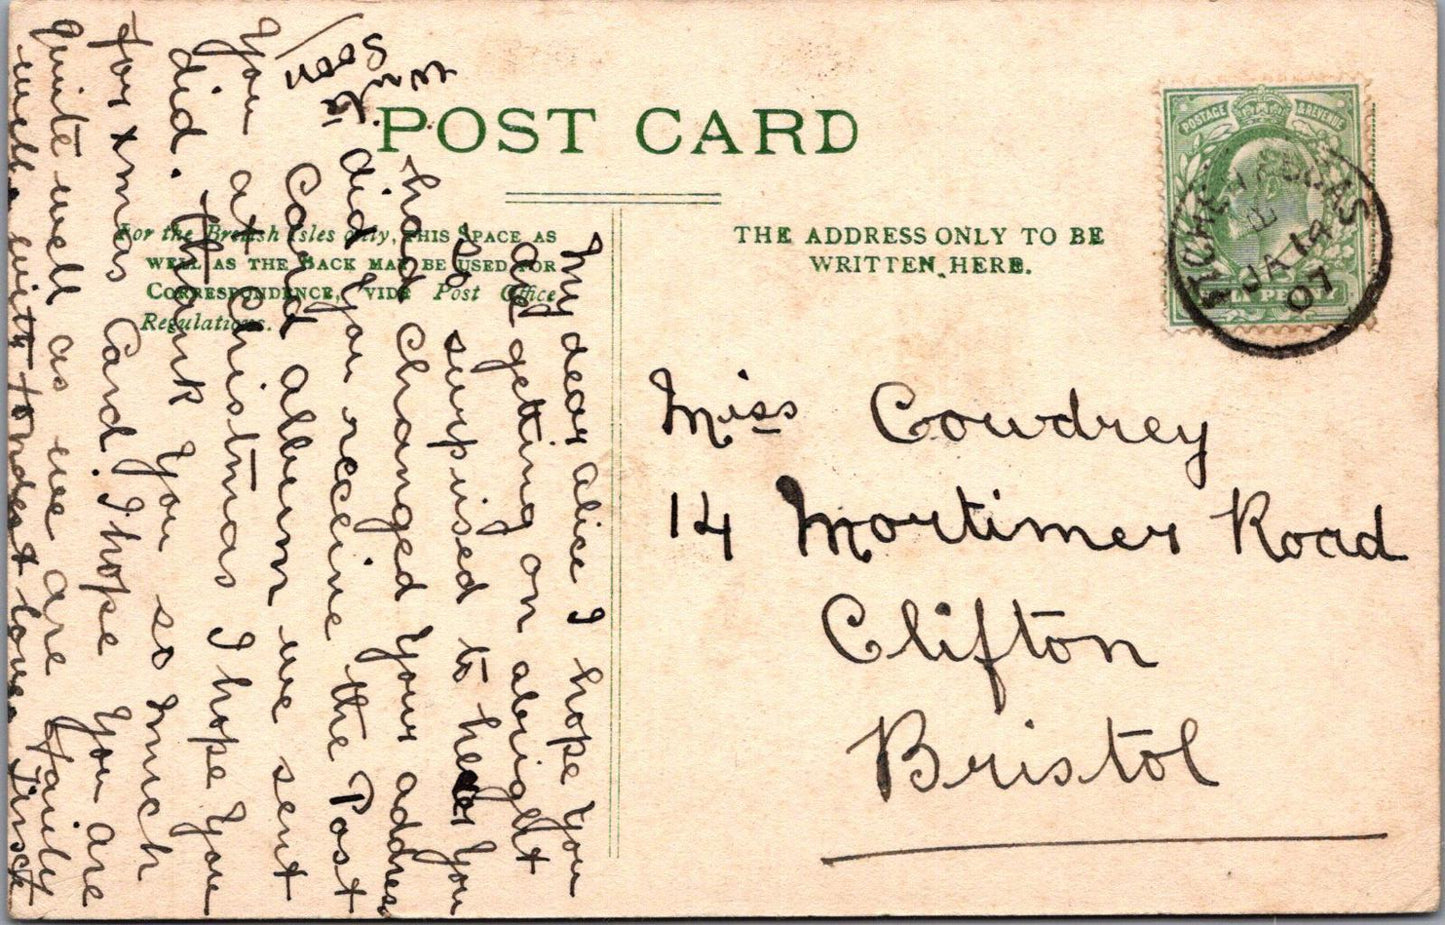 POST CARD
For the British Isles only, THIS SPACE AS
WELL AS THE BACK MAY BE USED FOR
CORRESPONDENCE, VIDE Post Office
Regulations.
THE ADDRESS ONLY TO BE
WRITTEN HERE.
POSTAGE & REVENUE
E
JA 14
07
Miss Cowdrey
14 Mortimer Road
Clifton
Bristol
My dear Alice I hope you
are getting on alright
so surprised to hear you
had changed your address
did you receive the Post
Card album we sent
you at Christmas I hope you
did. Thank you so much
for xmas Card. I hope you are
quite well as we are fairly
well with fondest love
write
soon